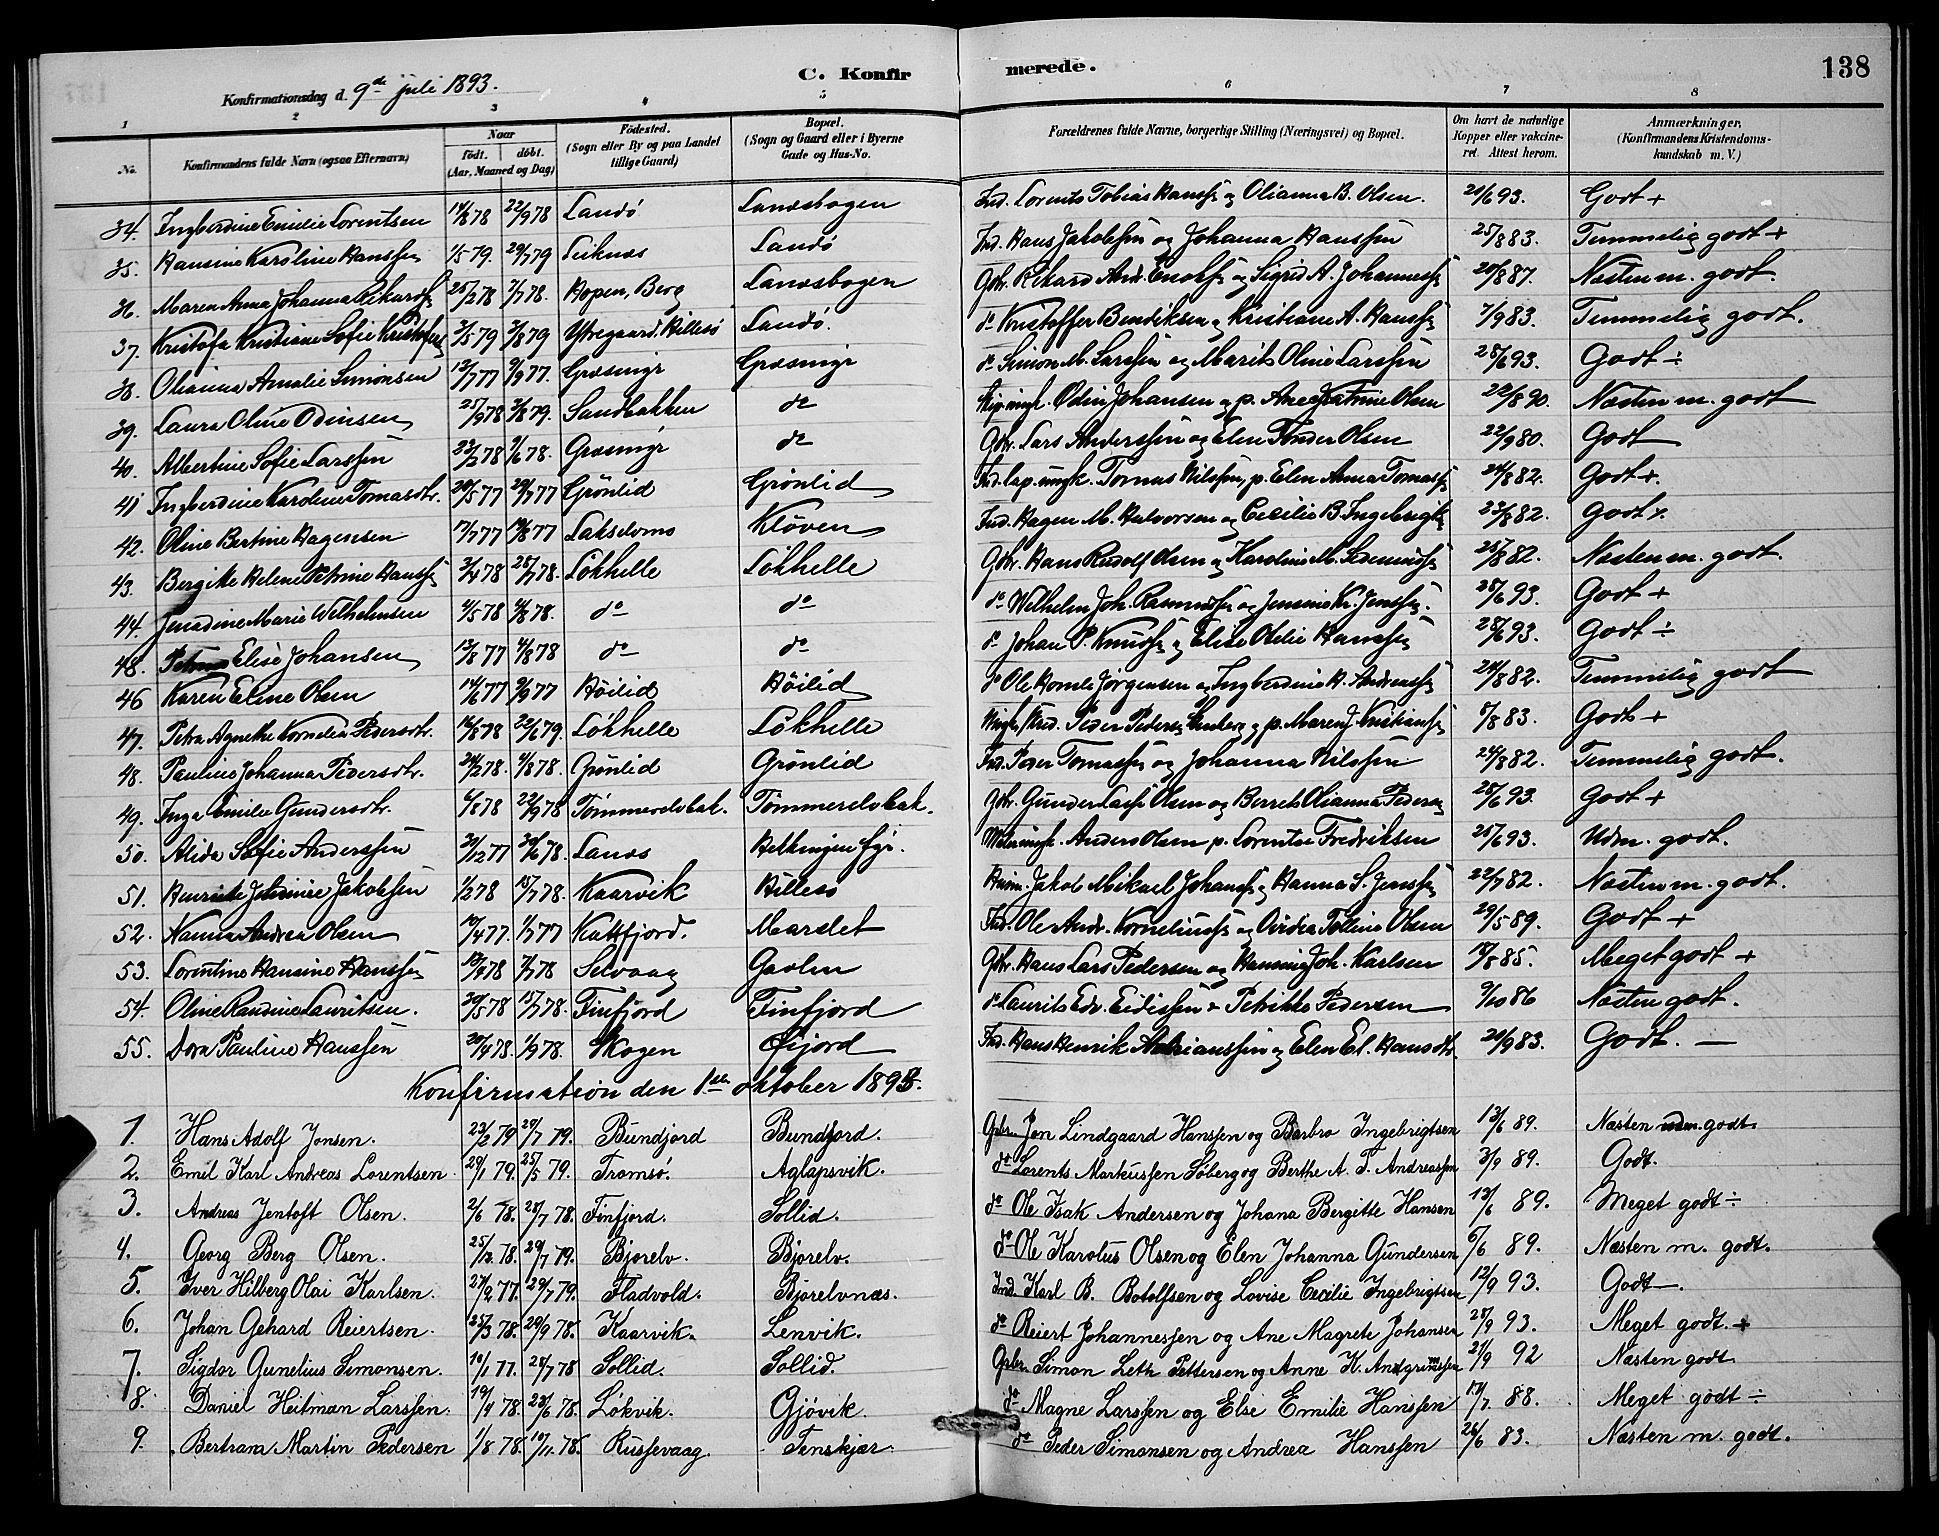 C. Konfirmerede. 138
Konfirmationsdag d. 9de juli 1893.
1 2 3 4 5 6 7 8
No. Konfirmandens fulde Navn (ogsaa Efternavn) Naar født. døbt. (Aar, Maaned og Dag) Fødested. (Sogn eller By og paa Landet tillige Gaard) Bopæl. (Sogn og Gaard eller i Byerne Gade og Hus-No. Forældrenes fulde Navne, borgerlige Stilling (Næringsvei) og Bopæl. Om havt de naturlige Kopper eller vakcineret. Attest herom. Anmærkninger. (Konfirmandens Kristendomskundskab m. V.)
34. Ingberdine Emilie Lorentsen 14/8 78 22/9 78 Sandø Sandsbogen Ind. Lorents Tobias Hanss. og Olianna B. Olsen. 21/6 93. Godt +
35. Hansine Karoline Hanssen 1/5 79. 29/7 79 Leiknes Sandø Ind. Hans Jakobsen og Johanna Hanssen 25/8 83. Temmelig godt +
36. Maren Anna Johanna Rikards. 25/2 78 7/7 78. Hopen, Berg Sandsbogen Gbr. Rikard Andr. Enoks. og Sigrid A. Johanness. 20/8 87. Næsten m. godt
37. Kristofa Kristiane Sofie Kristofers. 3/5 79 3/8 79 Ytregaard. Hillesø Sandø. do Kristoffer Bendiksen og Kristiane A. Hanss. 7/9 83. Temmelig godt.
38. Olianna Amalie Simonsen 13/7 77 9/9 77. Græsmyr Græsmyr do Simon M. Larssen og Marit Oline Larssen 28/6 93. Godt ÷
39. Laura Oline Odinsen 25/9 78 3/8 79. Sandbakken do Odin Johansen og p. Ane Katrine Olsen 22/8 90. Næsten m. godt
40. Albertine Sofie Larssen 23/2 78 9/6 78. Græsmyr do Gbr. Lars Anderssen og Elen Olsen 22/9 80. Godt
41 Ingberdine Karoline Tomasdtr. 20/5 77 29/7 77 Grønlid Grønlid Ind. lap. ungk. Tomas Nilssen, p. Elen Anna Tomass. 24/8 82. Godt +.
42. Oline Bertine Hagensen 17/7 77 19/8 77 Lakselvnes Kløven Ind. Hagen M. Halvorsen og Cecilie B. Ingebrigts. 23/8 82. Godt
43. Bergitte Helene Petrine Hanss. 3/4 78 28/7 78. Løkhelle Løkhelle Gbr. Hans Rudolf Olsen og Karoline M. 25/8 82. Næsten m. godt.
44. Jensdine Marie Wilhelmsen 4/5 78 4/8 78. do do do Wilhelm Joh. Rasmuss. og Jensine Kr. Jenss. 28/6 93. Godt +
48. Elise Johansen 13/8 77 4/8 78 do do do Johan P. Knuds. og Elise Otelie Hanss. 28/6 93. Godt ÷
46 Karen Eline Olsen 14/6 77 9/9 77 Høilid Høilid do Ole Jørgensen og Ingberdine H. Andreass. 24/8 82. Temmelig godt
47. Petra Agnethe Kornelia Pedersdtr. 16/8 78 22/6 79 Løkhelle Løkhelle Peder Pedersen og p. Maren J. Kristians. 8/8 83. Godt +
48. Pauline Johanna Pedersdtr. 24/2 78. 4/8 78. Grønlid Grønlid Ind. Peder Tomassen og Johanna Nilssen 24/8 82. Temmelig godt.
49. Inga Emilie Gundersdtr. 4/8 78 22/9 78 Tømmerelvbak. Tømmerelvbak. Gbr. Gunder Olsen og Beret Olianna Peders. 28/6 93. Godt +
50. Alida Sofie Anderssen 31/12 77 30/6 78. Sands Helkingen Anders Olsen p. Lorentse Fredriksen 25/6 93. Udm. godt.
51. Henriette Jakobsen 1/2 78 15/7 78. Kaarvik Hillesø Jakob Mikael Johans. og Hanna S. Jenss. 22/7 82. Næsten m. godt.
52. Nanna Andrea Olsen 10/4 77. 1/7 77 Kattfjord. Marslet Ind. Ole Andr. Korneliuss. og Ovidia Olsen 29/5 89. Godt +
53. Lorentine Hansine Hanssen 12/4 78 7/7 78 Selvaag Gavlen Gbr. Hans Lars Pedersen og Hansine Joh. Karlsen 17/8 85. Meget godt +
54. Oline Randine Lauritsen. 29/5 78 15/7 78. Finfjord Finfjord do Laurits Edv. Eidissen & Petrikke Pedersen 9/10 86 Næsten godt.
55. Dora Pauline Hanssen 20/4 78. 1/9 78. Skogen Øijord Ind. Hans Henrik Adrianssen og Elen El. Hansdtr. 20/9 83. Godt. —
Konfirmation den 1ste oktober 1893.
1. Hans Adolf Jonsen. 23/2 79 29/7 79. Bundjord Bundjord. Gbr. Jon Lindgaard Hanssen og Barbro Ingebrigtsen 13/6 89. Næsten udm. godt
2. Emil Karl Andreas Lorentsen. 29/1 79. 25/5 79. Tromsø. Aglapsvik. do Lorents Markussen Søberg og Berthe A. T. Andreassen 3/9 89. Godt.
3. Andreas Jentoft Olsen. 2/6 78. 28/7 78. Finfjord. Sollid. do Ole Isak Andersen og Johana Bergitte Hansen 13/6 89. Meget godt ÷
4. Georg Berg Olsen. 25/12 78. 29/7 79. Bjorelv. Bjorelv. do Ole Karolus Olsen og Elen Johanna Gundersen 6/6 89. Næsten m. godt.
5. Iver Hilberg Olai Karlsen. 27/9 77. 29/7 79. Fladvold. Bjorelvnæs. Ind. Karl B. Botolfsen og Lovise Cecilie Ingebrigtsen 12/9 93. Godt —.
6. Johan Gehard Reiertsen. 25/3 78. 29/9 78. Kaarvik. Lenvik. do Reiert Johannessen og Ane Magrete Johansen 28/9 93. Meget godt. +
7. Sigdor Gunelius Simonsen. 10/1 77. 28/7 78 Sollid. Sollid. Gbr. Simon Leth Pettersen og Anne K. Andgrimssen 21/9 92 Næsten godt
8. Daniel Heitman Larssen. 19/4 78. 23/6 78. Løkvik. Gjøvik. do Magne Larssen og Else Emilie Hanssen 17/7 88. Meget godt ÷
9. Bertram Martin Pedersen 1/8 78. 10/11 78. Russevaag. Tenskjær. do Peder Simonsen og Andrea Hanssen 26/6 83. Næsten m. godt.